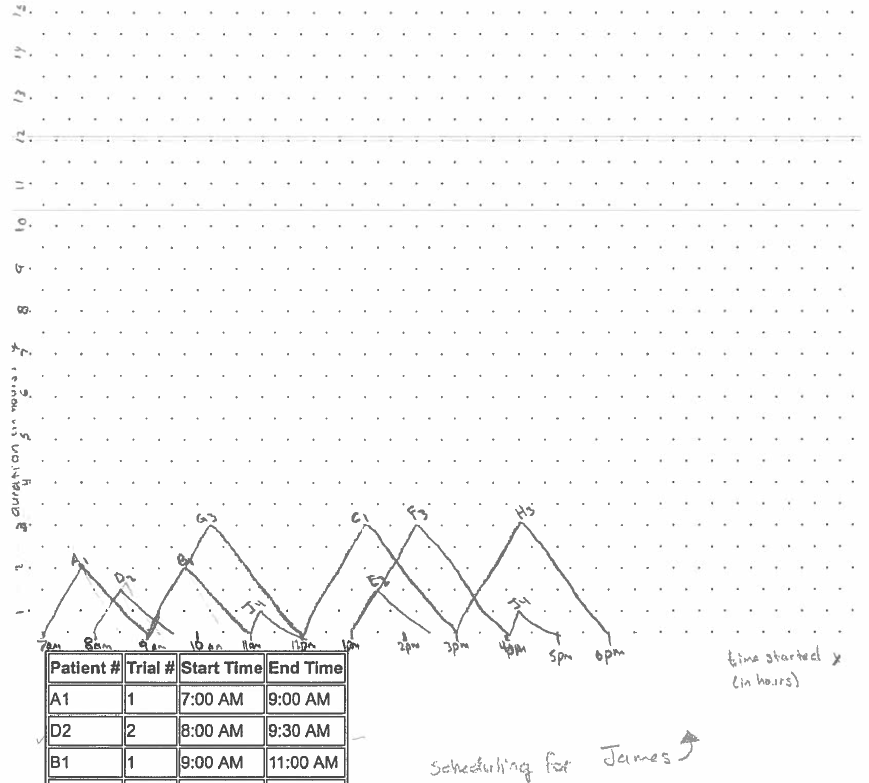 15
14
13
12
11
10
9
8
7
6
5
4
3
2
1
duration (in hours) y
G3
C1
F3
H3
A1
D2
B1
E2
J4
J4
7am 8am 9am 10am 11am 12pm 1pm 2pm 3pm 4pm 5pm 6pm
time started x
(in hours)
Patient # Trial # Start Time End Time
A1 1 7:00 AM 9:00 AM
D2 2 8:00 AM 9:30 AM
B1 1 9:00 AM 11:00 AM
Scheduling for James